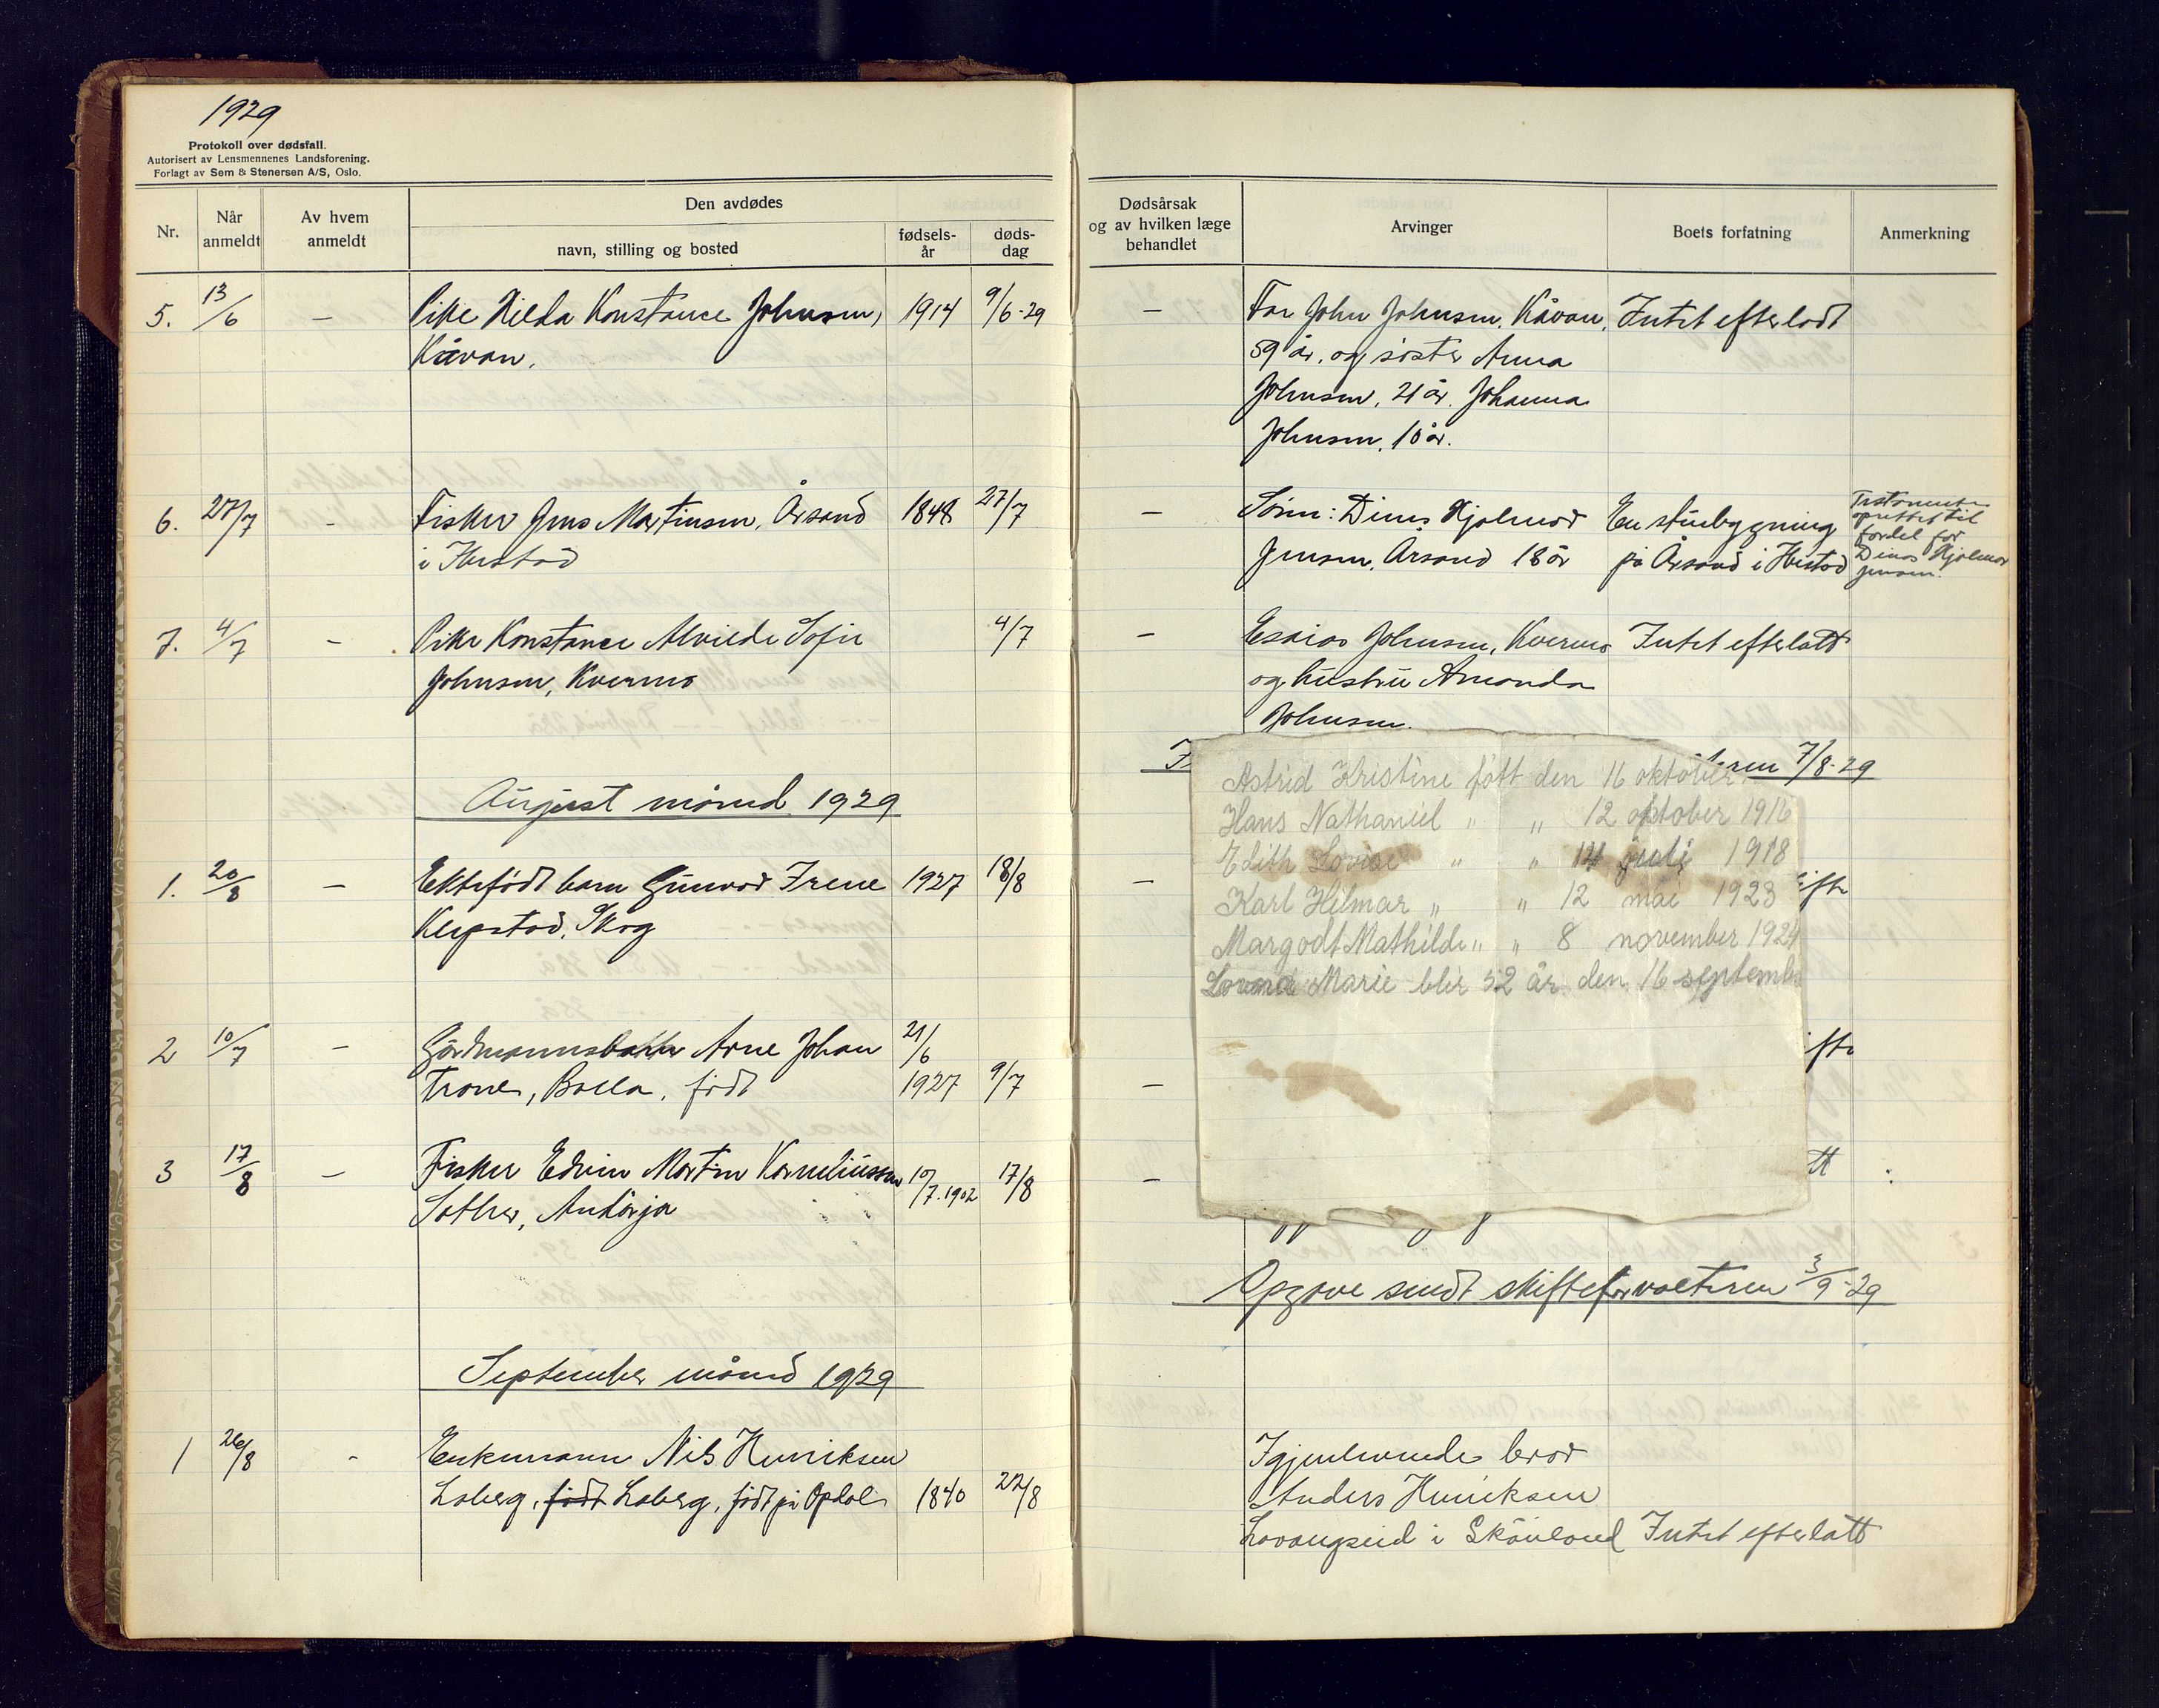 1929
Protokoll over dødsfall.
Autorisert av Lensmennenes Landsforening.
Forlagt av Sem & Stenersen A/S, Oslo.
Nr.
Når anmeldt
Av hvem anmeldt
Den avdødes
navn, stilling og bosted
fødsels-år
døds-dag
Dødsårsak og av hvilken læge behandlet
Arvinger
Boets forfatning
Anmerkning
5. 13/6 — Pike Hilda Konstance Johnsen, 1914 9/6-29 — Far John Johnsen, Kåvan, Intet efterladt
Kåvan. 59 år, og søster Anna
Johnsen, 21 år. Johanna
Johnsen, 10 år.
6. 27/7 - Fisker Jens Martinsen, Årsand 1848 27/7 — Sønn: Dines Hjalmar En stuebygning Testamente
i Ibestad Jensen, Årsand 18 år på Årsand i Ibestad oprettet til
fordel for
Dines Hjalmar
Jensen.
7. 4/7 — Pike Konstance Alvilde Sofie 4/7 — Esaias Johnsen, Kvernmo Intet efterlatt
Johnsen, Kvernmo og hustru Amanda
Johnsen.
7/8-29
August måned 1929
Astrid Kristine født den 16 oktober
Hans Nathaniel " " 12 oktober 1916
Edith Lovise " " 14 juli 1918
Karl Hilmar " " 12 mai 1923
Margodt Mathilde " " 8 november 1924
Marie blir 52 år den 16 septembe
1. 20/8 — Ektefødt barn Gunvor Irene 1927 18/8 — ifte
Klepstad, Skog
2 10/7 — Gårdmannsbarn Arne Johan 21/6 ifte
Trone, Bolla, født 1927 9/7 —
3 17/8 — Fisker Edvin Martin Korneliussen 10/7.1902 17/8 — tt
Sather, Andørja
Opgave sendt skifteforvalteren 3/9-29
September måned 1929
1 26/8 - Enkemann Nils Henriksen Igjenlevende bror
Laberg, født Laberg, født på Opdal 1840 22/8 Anders Henriksen
Lavangseid i Skånland Intet efterlatt